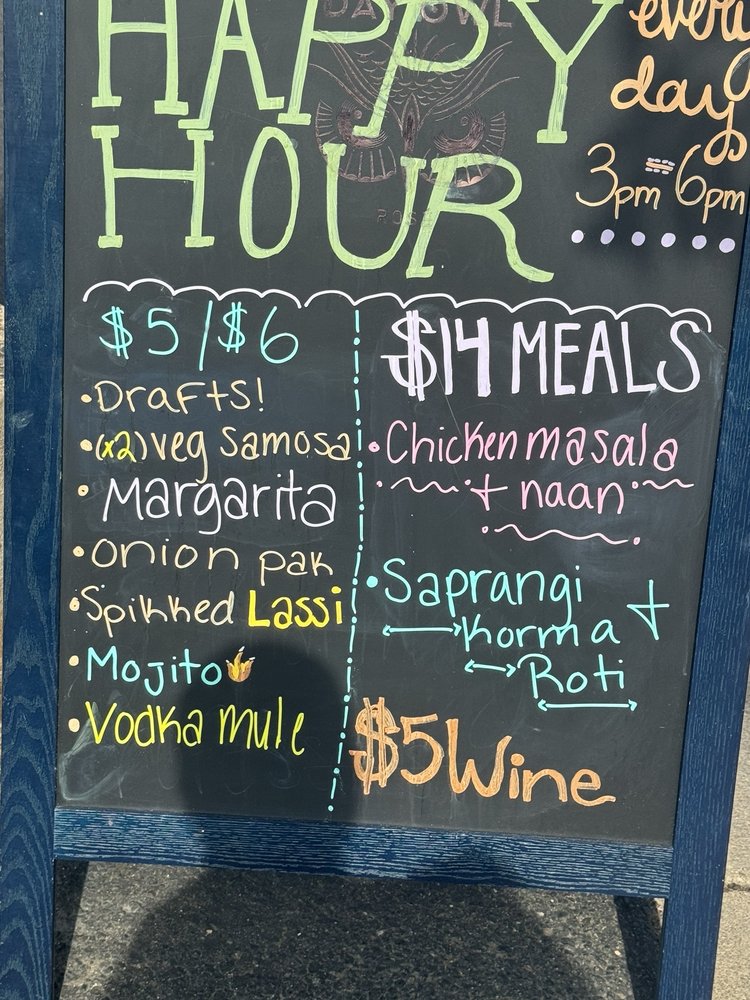 HAPPY
HOUR
every
day
3pm=6pm
$5/$6
• Drafts!
• (x2) veg samosa
• Margarita
• onion pak
• Spikked Lassi
• Mojito
• Vodka mule
$14 MEALS
• Chicken masala
+ naan
• Saprangi
Korma +
Roti
$5 Wine